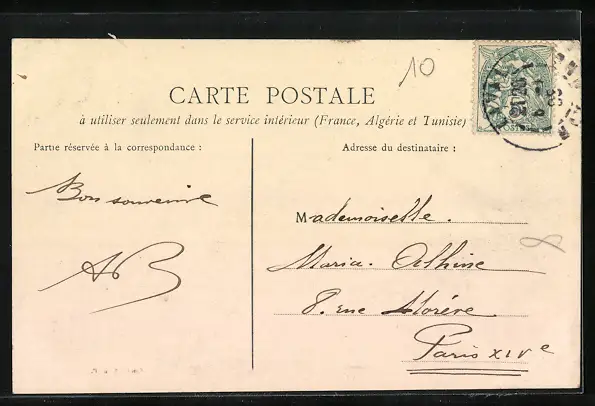 10
CARTE POSTALE
à utiliser seulement dans le service intérieur (France, Algérie et Tunisie)
Partie réservée à la correspondance :
Adresse du destinataire :
Bon souvenir
AB
Mademoiselle.
Maria
8. rue
Paris XIVe